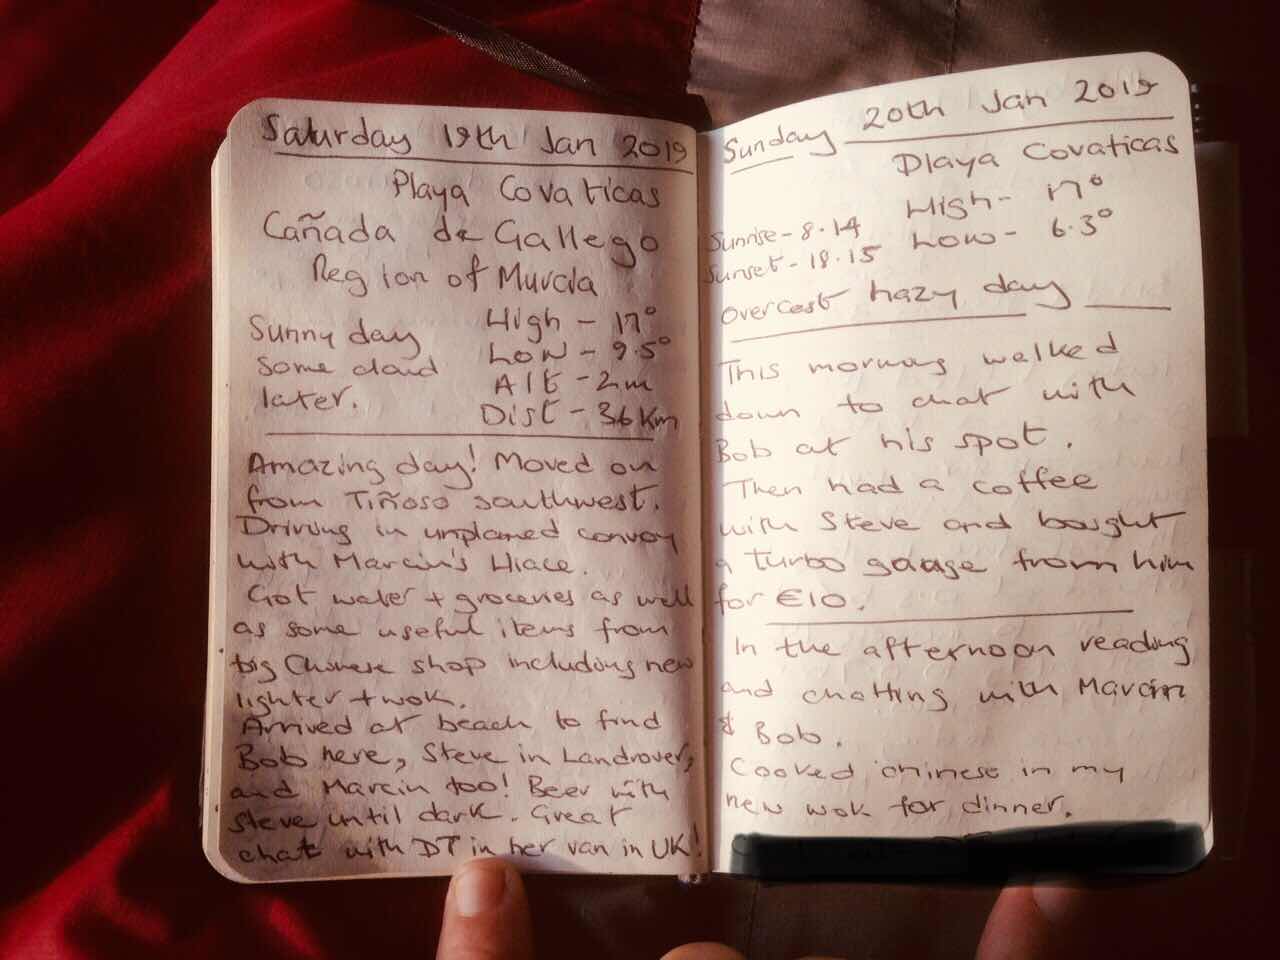 Saturday 19th Jan 2019
Playa Covaticas
Cañada de Gallego
Region of Murcia
Sunny day
Some cloud
later.
High - 17°
Low - 9.5°
Alt - 2m
Dist - 36Km
Amazing day! Moved on
from Tiñoso southwest.
Driving in unplanned convoy
with Marcin's Hiace.
Got water + groceries as well
as some useful items from
big Chinese shop including new
lighter + wok.
Arrived at beach to find
Bob here, Steve in Landrover,
and Marcin too! Beer with
Steve until dark. Great
chat with DT in her van in UK!
Sunday 20th Jan 2019
Playa Covaticas
High - 17°
Sunrise - 8.14
Low - 6.3°
Sunset - 18.15
Overcast hazy day
This morning walked
down to chat with
Bob at his spot.
Then had a coffee
with Steve and bought
a turbo gauge from him
for €10.
In the afternoon reading
and chatting with Marcin
& Bob.
Cooked chinese in my
new wok for dinner.